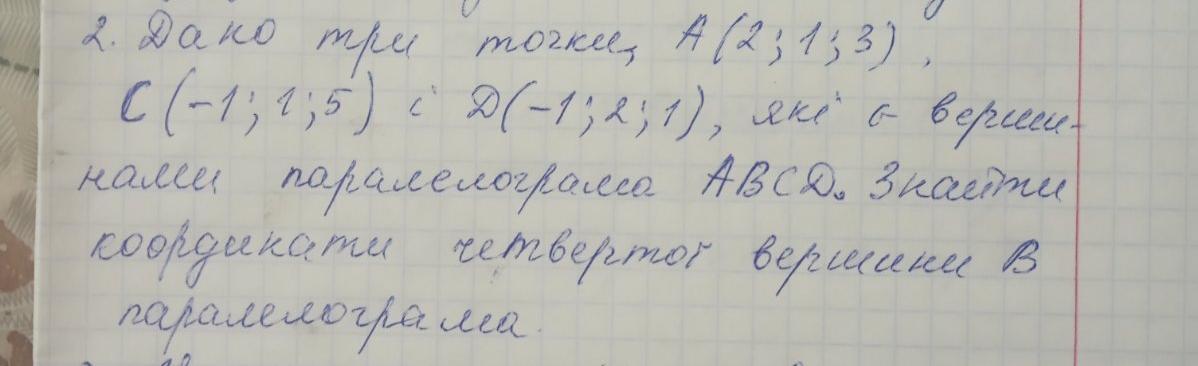 2. Дано три точки, A(2;1;3),
C(-1;1;5) і D(-1;2;1), які є верши-
нами паралелограма ABCD. Знайти
координати четвертої вершини B
паралелограма.